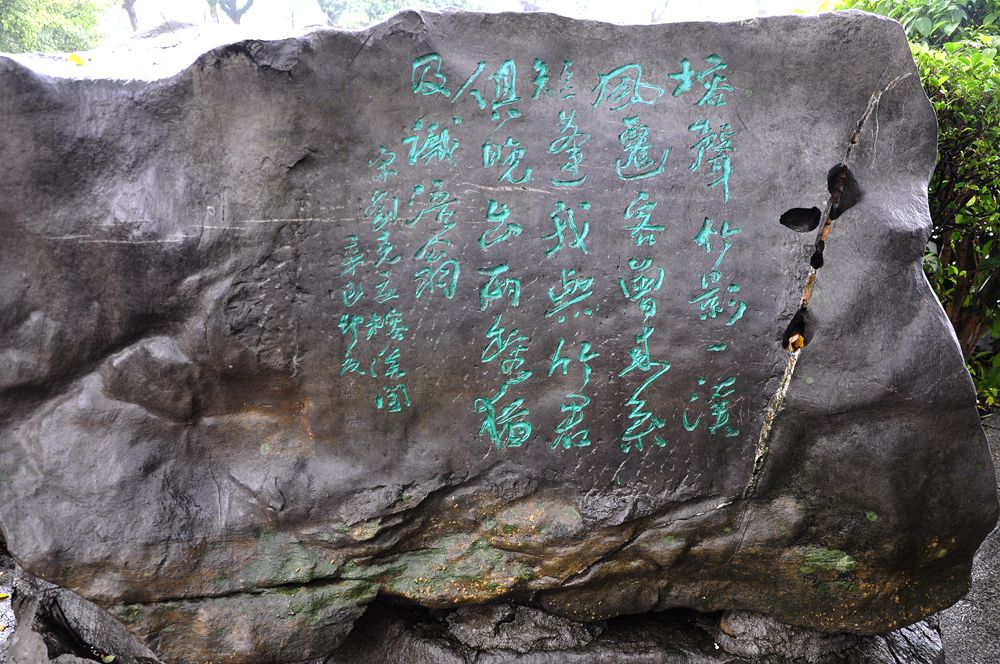 榕聲竹影一溪
風遷客曾來系
短蓬我與竹君
俱晚出兩榕猶
及識涪翁
宋劉克莊榕溪閣
辛巳仲夏